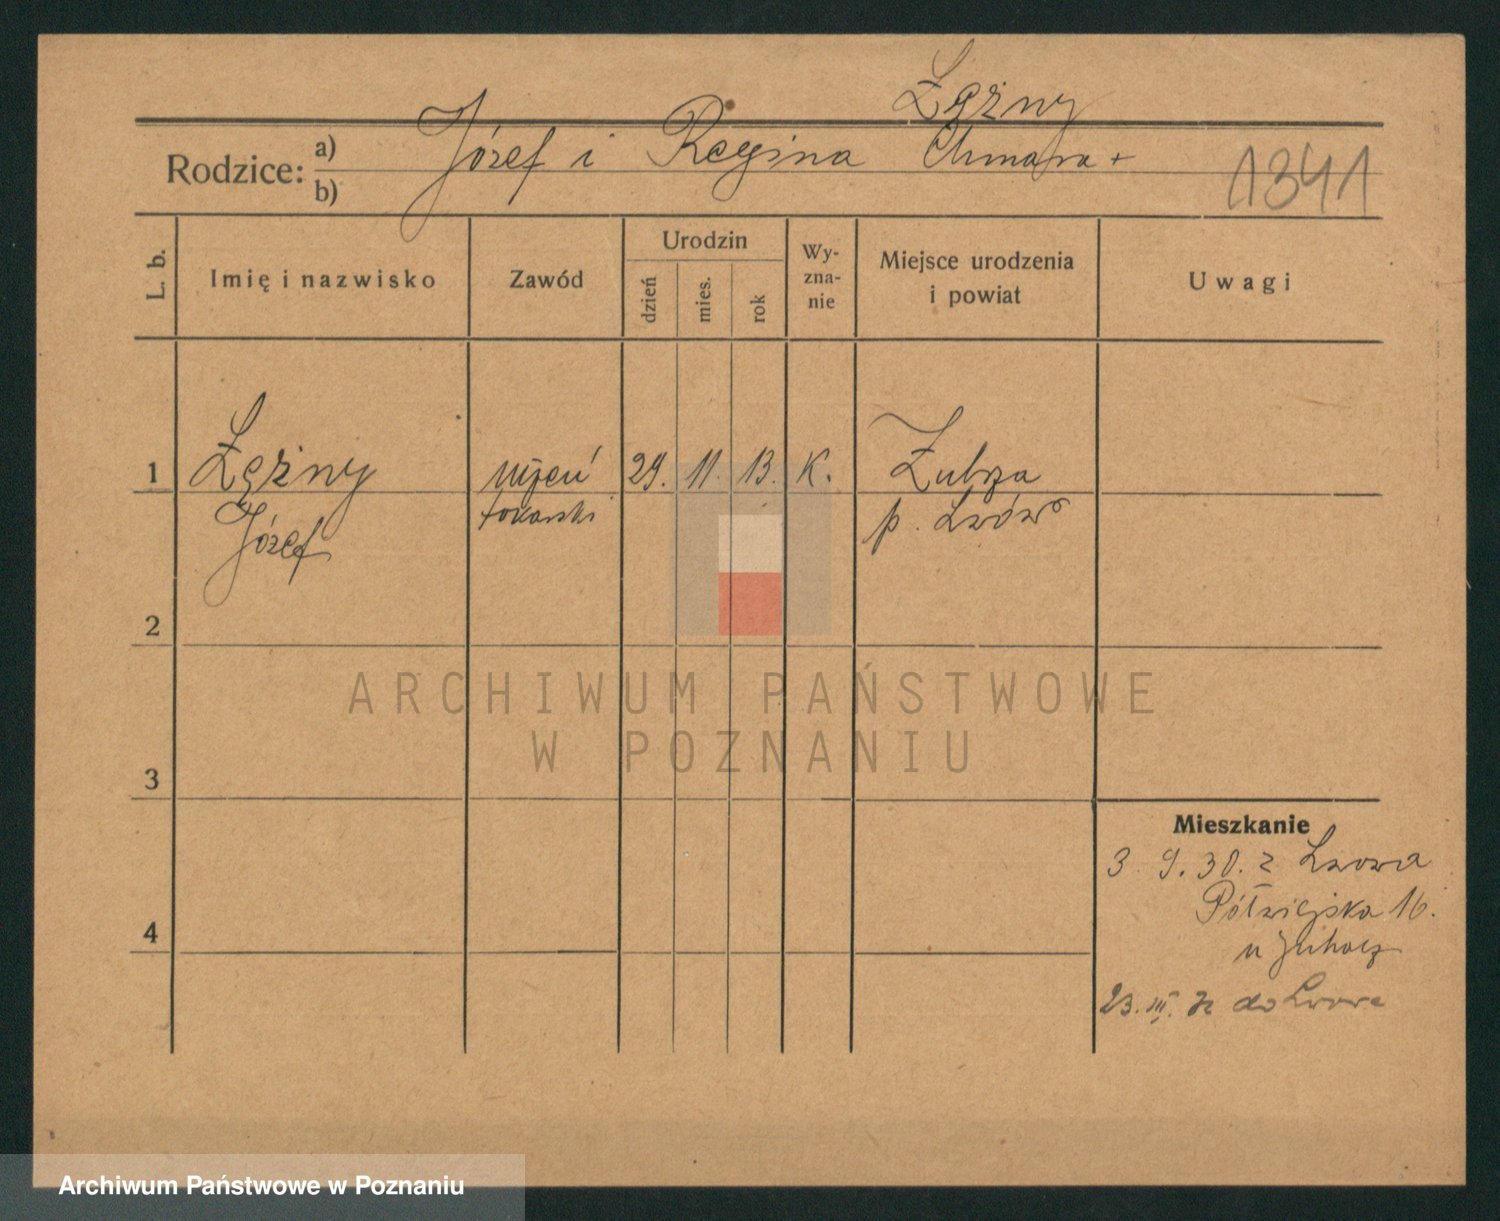 Łężny
Rodzice: a) b) Józef i Regina Chmara +
1341
L. b.
Imię i nazwisko
Zawód
Urodzin
dzień
mies.
rok
Wy-
zna-
nie
Miejsce urodzenia
i powiat
Uwagi
1 Łężny uczeń 29. 11. 13. K. Zubrza
Józef tokarski p. Lwów
2
3
4
Mieszkanie
3 9. 30. z Lwowa
Półwiejska 16.
u
23. III. do Lwowa
ARCHIWUM PAŃSTWOWE
W POZNANIU
Archiwum Państwowe w Poznaniu